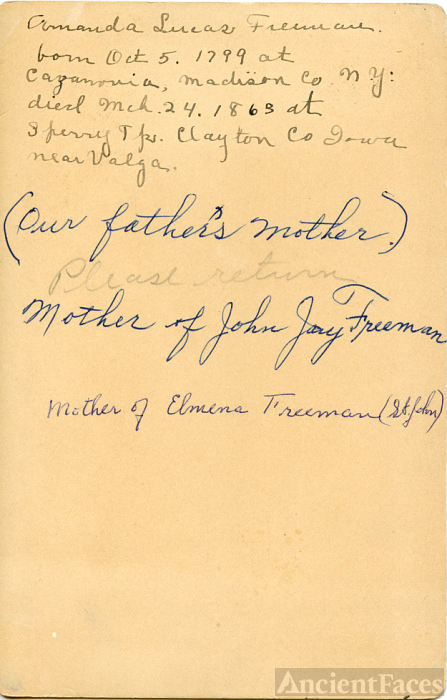 Amanda Lucas Freeman.
born Oct 5. 1799 at
Cazanovia, Madison Co. N.Y.
died Mch. 24. 1863 at
Sperry Tp. Clayton Co Iowa
near Volga.
(Our father's Mother.)
Please return
Mother of John Jay Freeman
Mother of Elmena Freeman (St. John)
AncientFaces